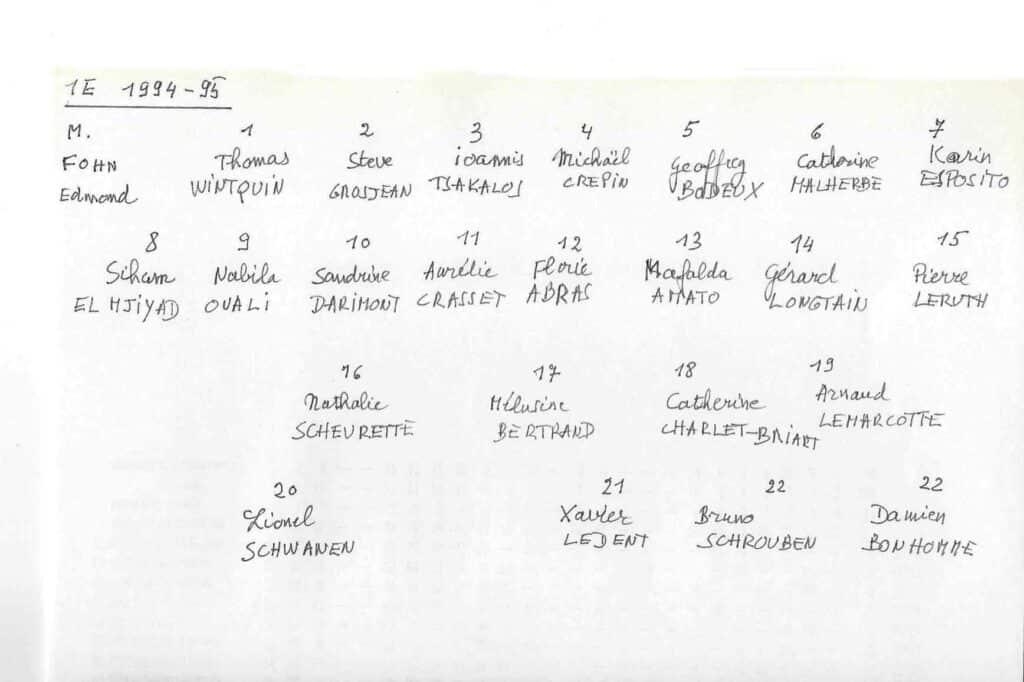 1E 1994-95
M. 1 2 3 4 5 6 7
FOHN Thomas Steve ioannis Michaël Geoffrey Catherine Karin
Edmond WINTQUIN GROSJEAN TSAKALOS CREPIN BODEUX MALHERBE ESPOSITO
8 9 10 11 12 13 14 15
Siham Nabila Sandrine Aurélie Florie Mafalda Gérard Pierre
EL MJIYAD OUALI DARIMONT CRASSET ABRAS AMATO LONGTAIN LERUTH
16 17 18 19
Nathalie Mélusine Catherine Arnaud
SCHEURETTE BERTRAND CHARLET-BRIART LEMARCOTTE
20 21 22 22
Lionel Xavier Bruno Damien
SCHWANEN LEDENT SCHROUBEN BONHOMME